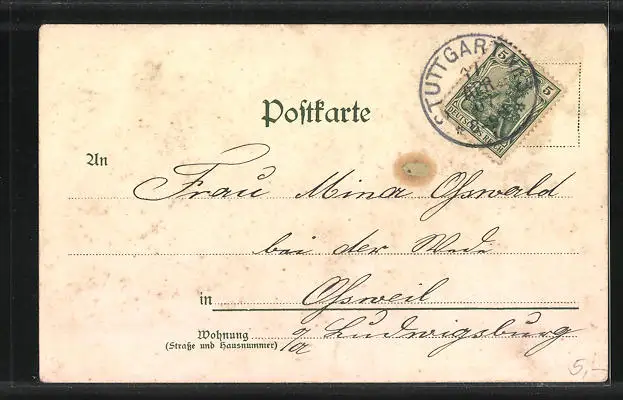 STUTTGART
5 5
DEUTSCHES REICH
Postkarte
An
Frau Mina Oßwald
bei der Wede
in Oßweil
Wohnung
(Straße und Hausnummer)
o/a Ludwigsburg
5,-